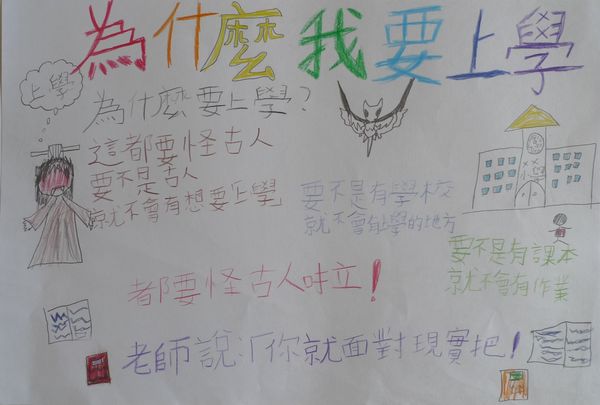 為什麼我要上學
上學
為什麼要上學？
這都要怪古人
要不是古人
就不會有想要「上學」
要不是有學校
就不會有上學的地方
要不是有課本
就不會有作業
都要怪古人啦！
老師說：「你就面對現實把！